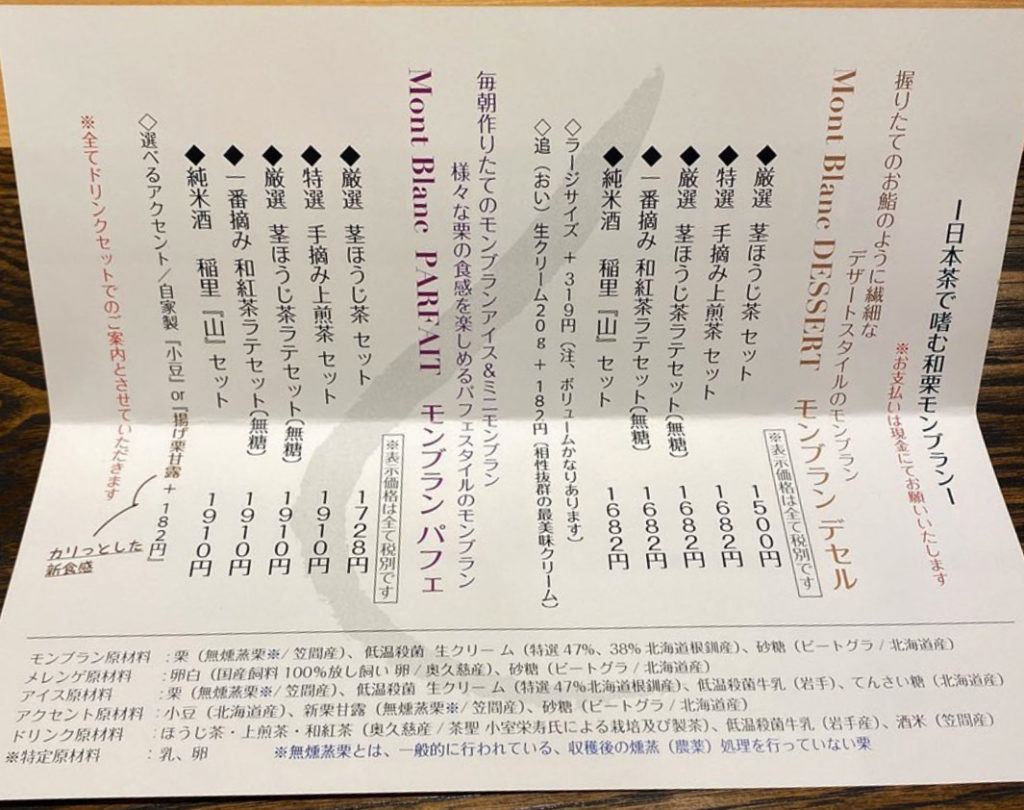 ー日本茶で嗜む和栗モンブランー
※お支払いは現金にてお願いいたします
握りたてのお鮨のように繊細な
デザートスタイルのモンブラン
Mont Blanc DESSERT モンブラン デセル
※表示価格は全て税別です
◆厳選 茎ほうじ茶 セット 1500円
◆特選 手摘み上煎茶 セット 1682円
◆厳選 茎ほうじ茶ラテセット(無糖) 1682円
◆一番摘み 和紅茶ラテセット(無糖) 1682円
◆純米酒 稲里『山』セット 1682円
◇ラージサイズ + 319円(注、ボリュームかなりあります)
◇追(おい)生クリーム20g + 182円(相性抜群の最美味クリーム)
毎朝作りたてのモンブランアイス&ミニモンブラン
様々な栗の食感を楽しめるパフェスタイルのモンブラン
Mont Blanc PARFAIT モンブラン パフェ
※表示価格は全て税別です
◆厳選 茎ほうじ茶 セット 1728円
◆特選 手摘み上煎茶 セット 1910円
◆厳選 茎ほうじ茶ラテセット(無糖) 1910円
◆一番摘み 和紅茶ラテセット(無糖) 1910円
◆純米酒 稲里『山』セット 1910円
◇選べるアクセント/自家製『小豆』or『揚げ栗甘露 + 182円』
カリっとした
新食感
※全てドリンクセットでのご案内とさせていただきます
モンブラン原材料 :栗(無燻蒸栗※/笠間産)、低温殺菌 生クリーム(特選47%、38% 北海道根釧産)、砂糖(ビートグラ/北海道産)
メレンゲ原材料 :卵白(国産飼料100%放し飼い 卵/奥久慈産)、砂糖(ビートグラ/北海道産)
アイス原材料 :栗(無燻蒸栗※/笠間産)、低温殺菌 生クリーム(特選47%北海道根釧産)、低温殺菌牛乳(岩手)、てんさい糖(北海道産)
アクセント原材料 :小豆(北海道産)、新栗甘露(無燻蒸栗※/笠間産)、砂糖(ビートグラ/北海道産)
ドリンク原材料 :ほうじ茶・上煎茶・和紅茶(奥久慈産/茶聖 小室栄寿氏による栽培及び製茶)、低温殺菌牛乳(岩手産)、酒米(笠間産)
※特定原材料 :乳、卵 ※無燻蒸栗とは、一般的に行われている、収穫後の燻蒸(農薬)処理を行っていない栗